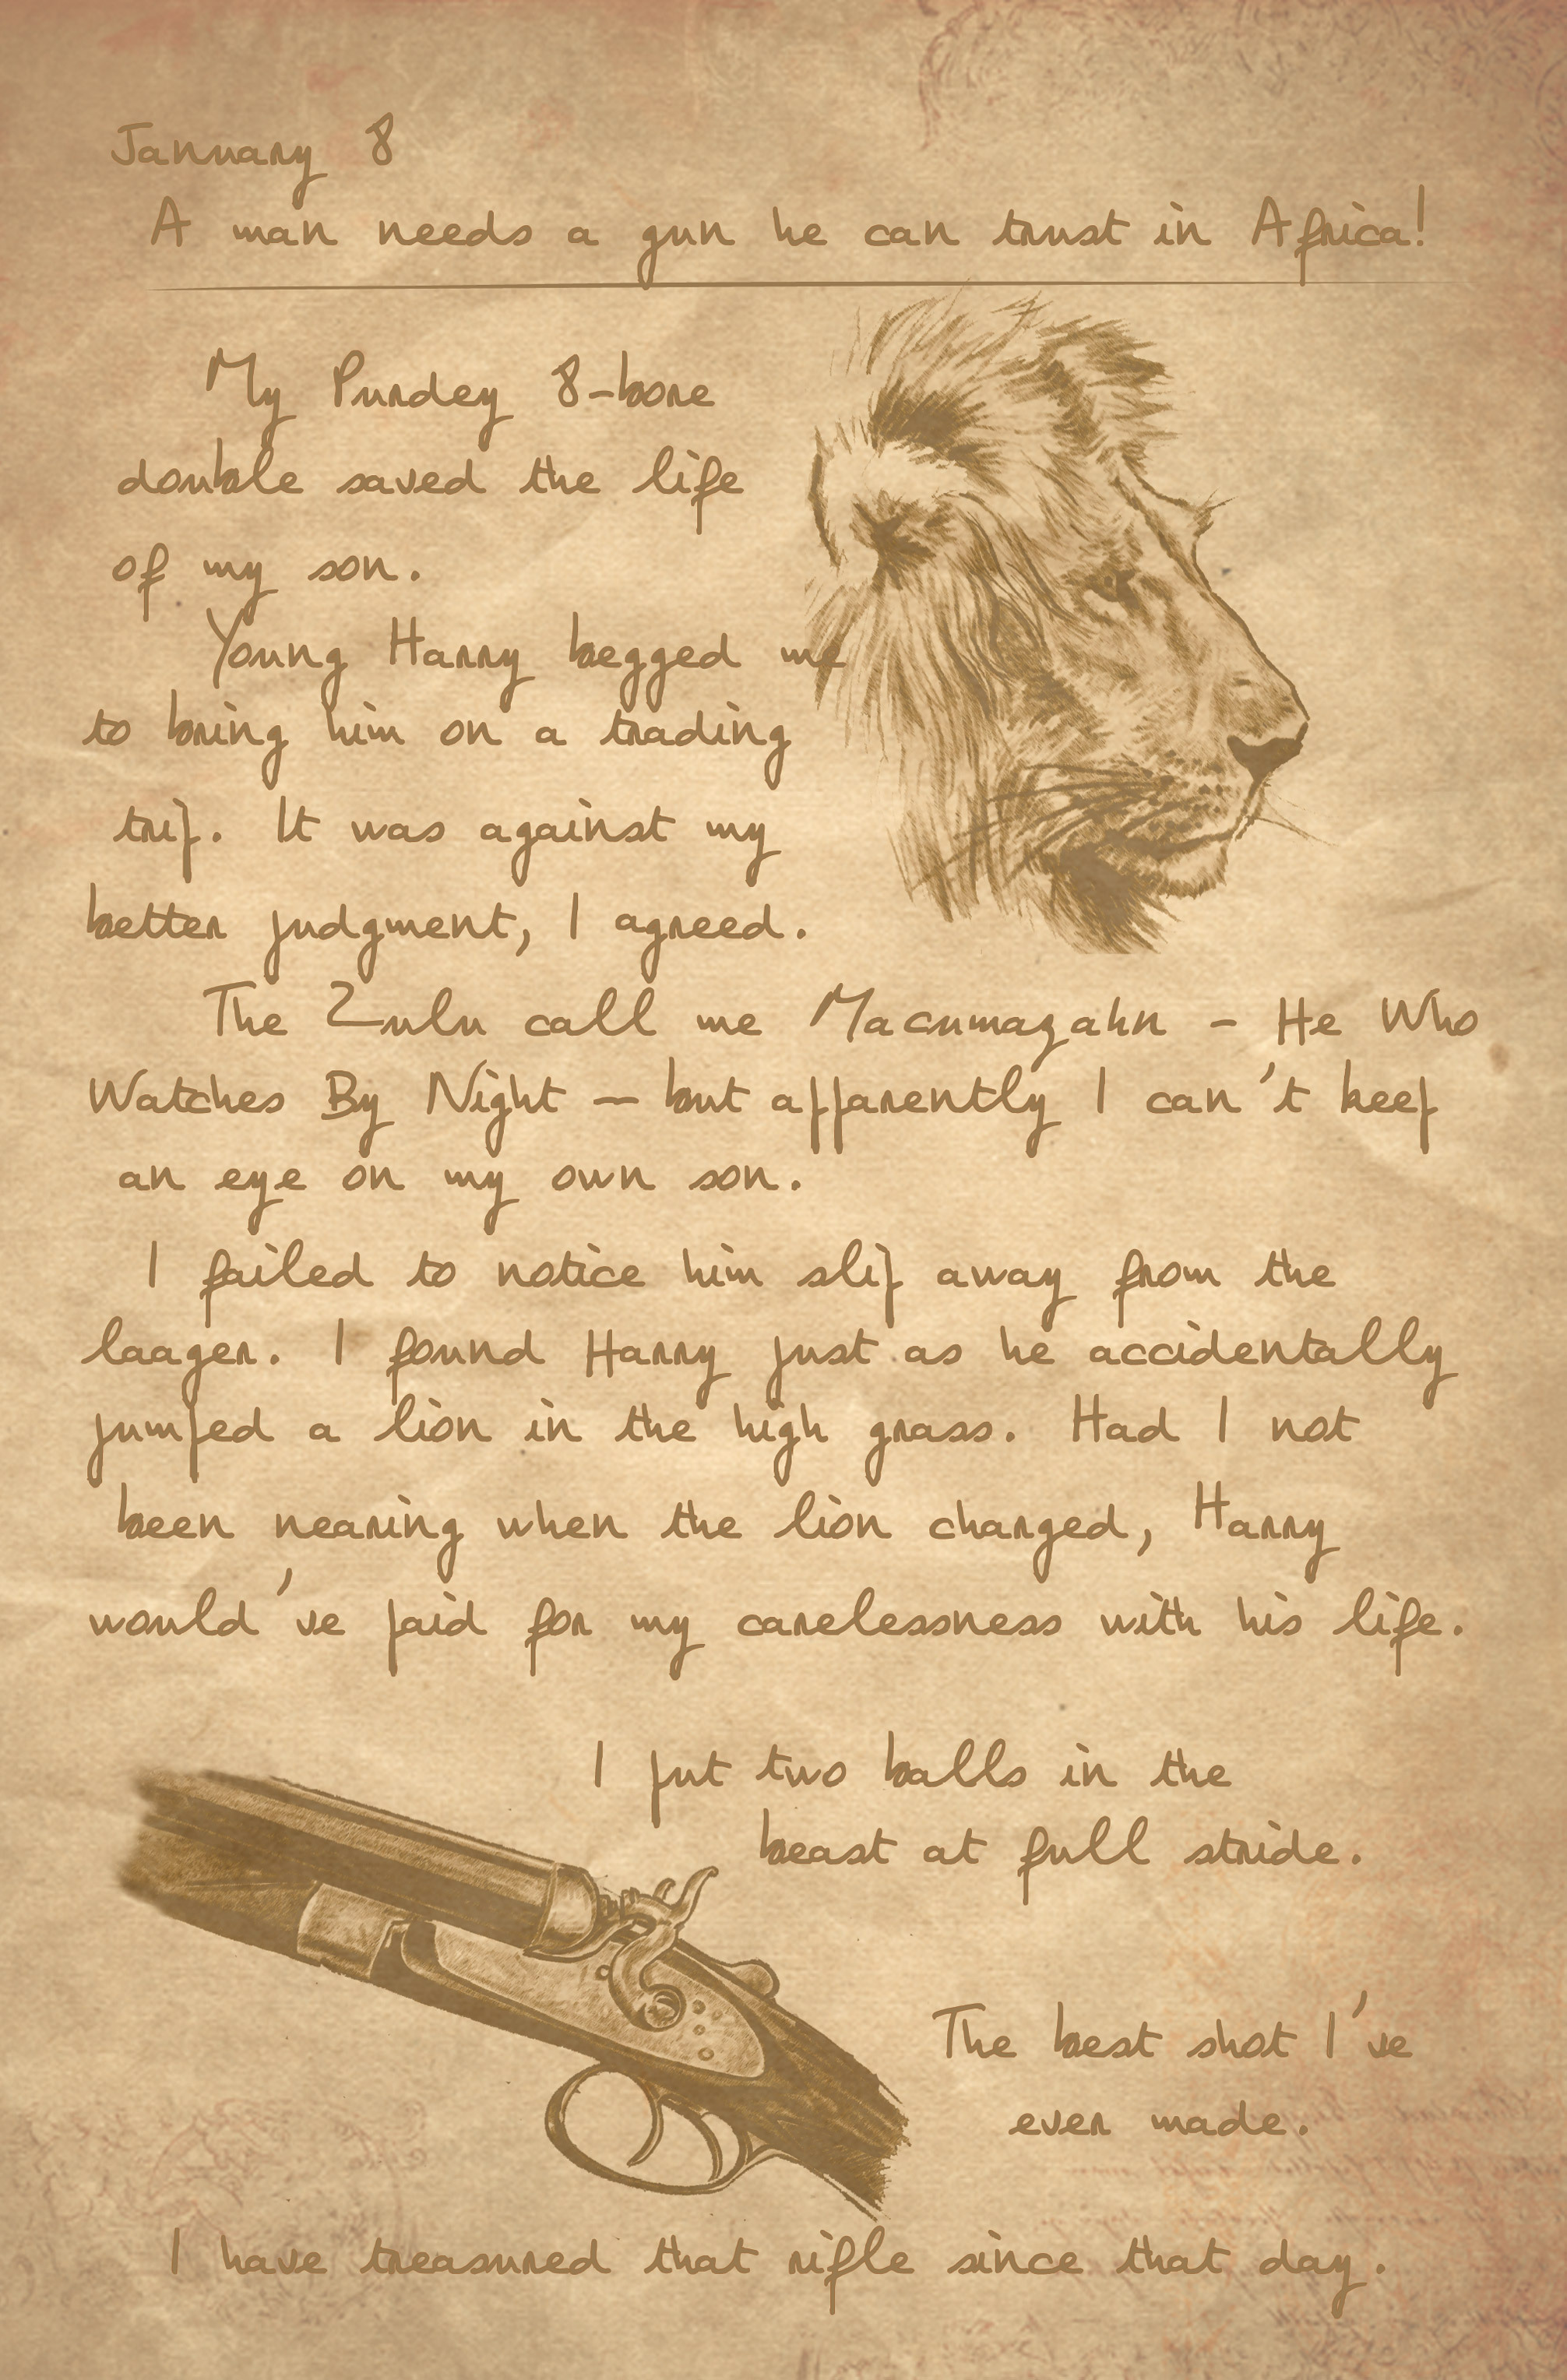 January 8
A man needs a gun he can trust in Africa!
My Purdey 8-bore
double saved the life
of my son.
Young Harry begged me
to bring him on a trading
trip. It was against my
better judgment, I agreed.
The Zulu call me Macumazahn - He Who
Watches By Night — but apparently I can't keep
an eye on my own son.
I failed to notice him slip away from the
laager. I found Harry just as he accidentally
jumped a lion in the high grass. Had I not
been nearing when the lion charged, Harry
would've paid for my carelessness with his life.
I put two balls in the
beast at full stride.
The best shot I've
ever made.
I have treasured that rifle since that day.